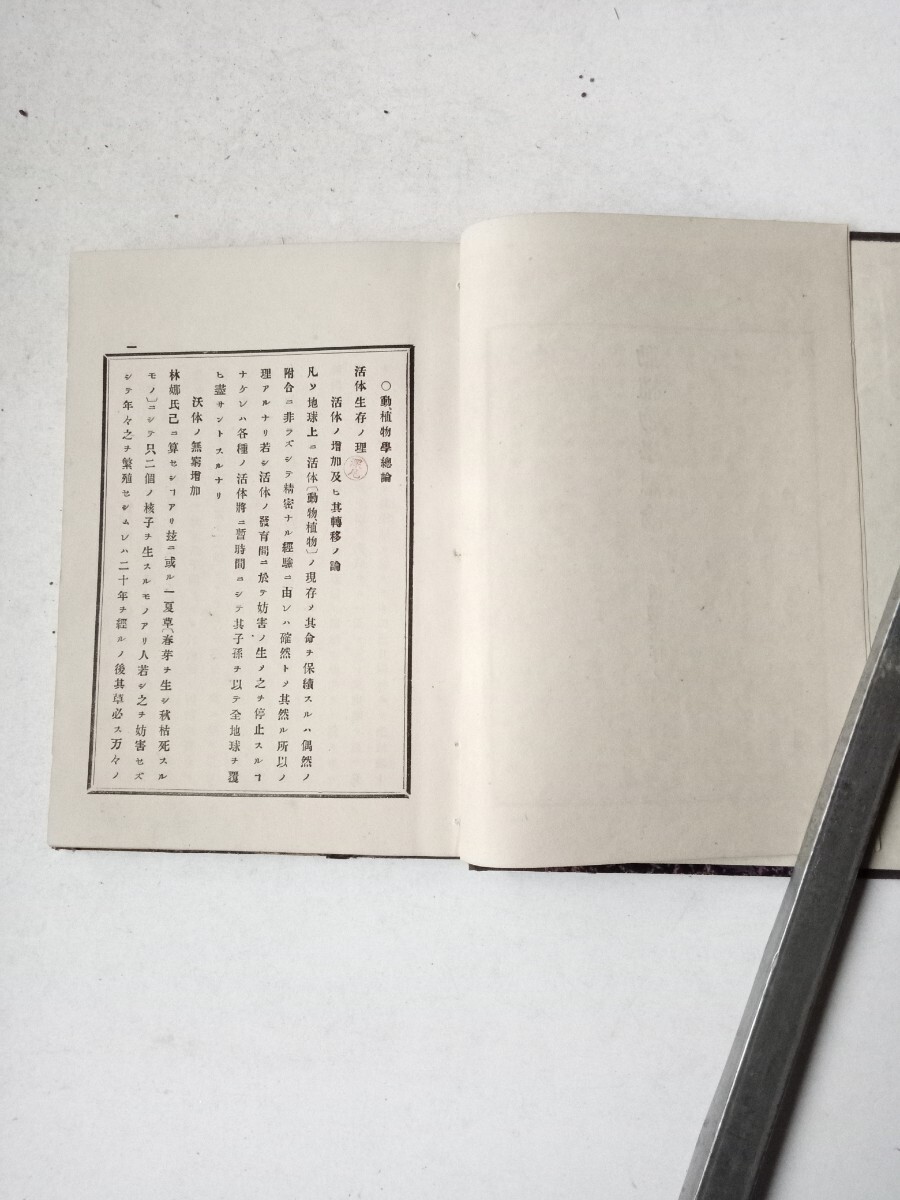 ○動植物學總論
活体生存ノ理
活体ノ增加及ヒ其轉移ノ論
凡ソ地球上ニ活体〔動物植物〕ノ現存ノ其命チ保續スルハ偶然ノ
附合ニ非ラズシテ精密ナル經驗ニ由レハ確然トメ其然ル所以ノ
理アルナリ若シ活体ノ發育間ニ於テ妨害ノ生メ之チ停止スルヿ
ナケレハ各種ノ活体將ニ暫時間ニシテ其子孫チ以テ全地球チ覆
ヒ盡サントスルナリ
活体ノ無窮增加
林娜氏已ニ算セシヿアリ玆ニ或ル一夏草〔春芽チ生シ秋枯死スル
モノ〕ニシテ只二個ノ核子チ生スルモノアリ人若シ之チ妨害セズ
シテ年々之チ繁殖セシムレハ二十年チ經ルノ後其草必ス万々ノ
一